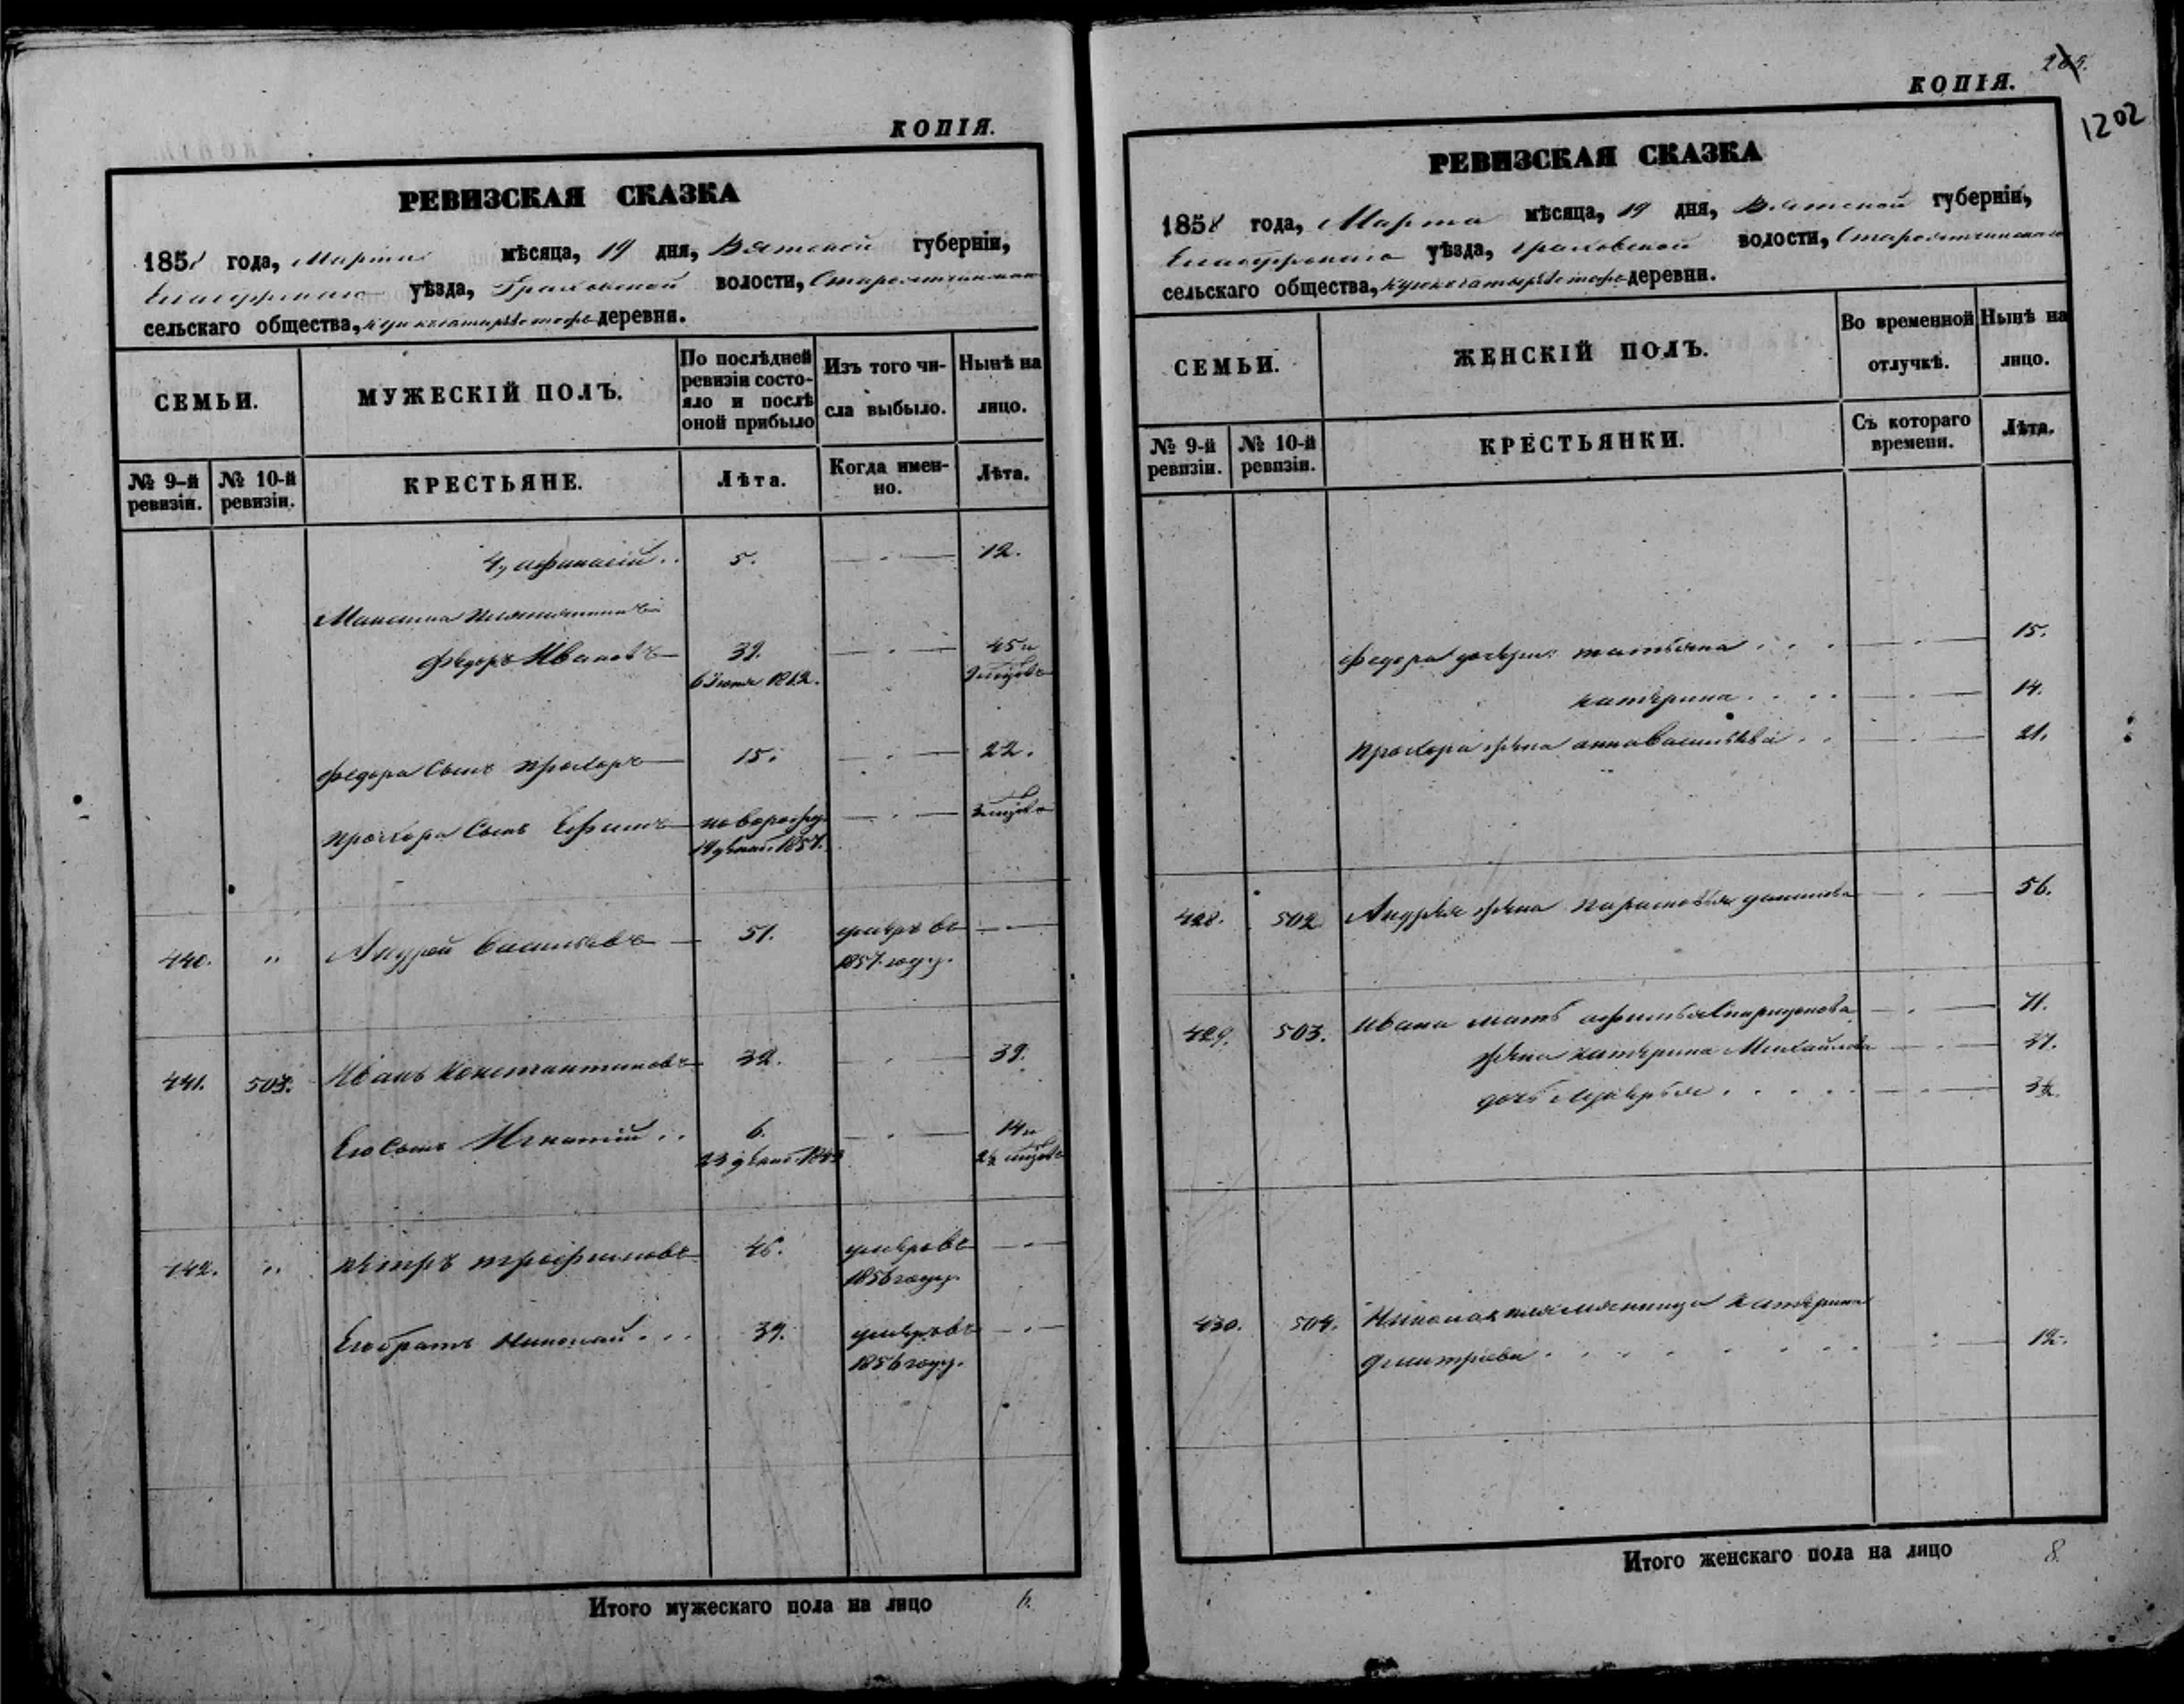 КОПІЯ.
РЕВИЗСКАЯ СКАЗКА
1858 года, Марта мѣсяца, 19 дня, Вятской губерніи,
уѣзда, Граховской волости,
сельскаго общества, деревни.
СЕМЬИ.
МУЖЕСКІЙ ПОЛЪ.
По послѣдней ревизіи состояло и послѣ оной прибыло
Изъ того числа выбыло.
Нынѣ на лицо.
№ 9-й ревизіи.
№ 10-й ревизіи.
КРЕСТЬЯНЕ.
Лѣта.
Когда именно.
Лѣта.
4, афанасій .. 5. 12.
Максима
Федоръ Ивановъ 39. 45 и
6 Іюня 1812. 9 мцовъ
Федора сынъ Прохоръ 15. 22.
Прохора сынъ Ефимъ новорожд. 3 мцовъ
19 декаб. 1857.
440. " Андрей Васильевъ 51. умеръ въ
1857 году.
441. 503. Иванъ Константиновъ 32. 39.
Его сынъ Игнатій .. 6. 14 и
23 декаб. 2½ мцовъ
442. " Петръ Трофимовъ 46. умеръ въ
1856 году.
Его братъ Николай ... 39. умеръ въ
1856 году.
Итого мужескаго пола на лицо 6.
КОПІЯ.
1202
РЕВИЗСКАЯ СКАЗКА
1858 года, Марта мѣсяца, 19 дня, Вятской губерніи,
уѣзда, Граховской волости,
сельскаго общества, деревни.
СЕМЬИ.
ЖЕНСКІЙ ПОЛЪ.
Во временной отлучкѣ.
Нынѣ на лицо.
№ 9-й ревизіи.
№ 10-й ревизіи.
КРЕСТЬЯНКИ.
Съ котораго времени.
Лѣта.
Федора дочери: татьяна 15.
катерина 14.
Прохора жена анна Васильева 21.
428. 502 Андрея жена Парасковья данилова 56.
429. 503. Ивана мать афимья Спиридонова 71.
жена катерина Михайлова 37.
дочь 3½.
430. 504. Николая племянница катерина
дмитриева 12.
Итого женскаго пола на лицо 8.